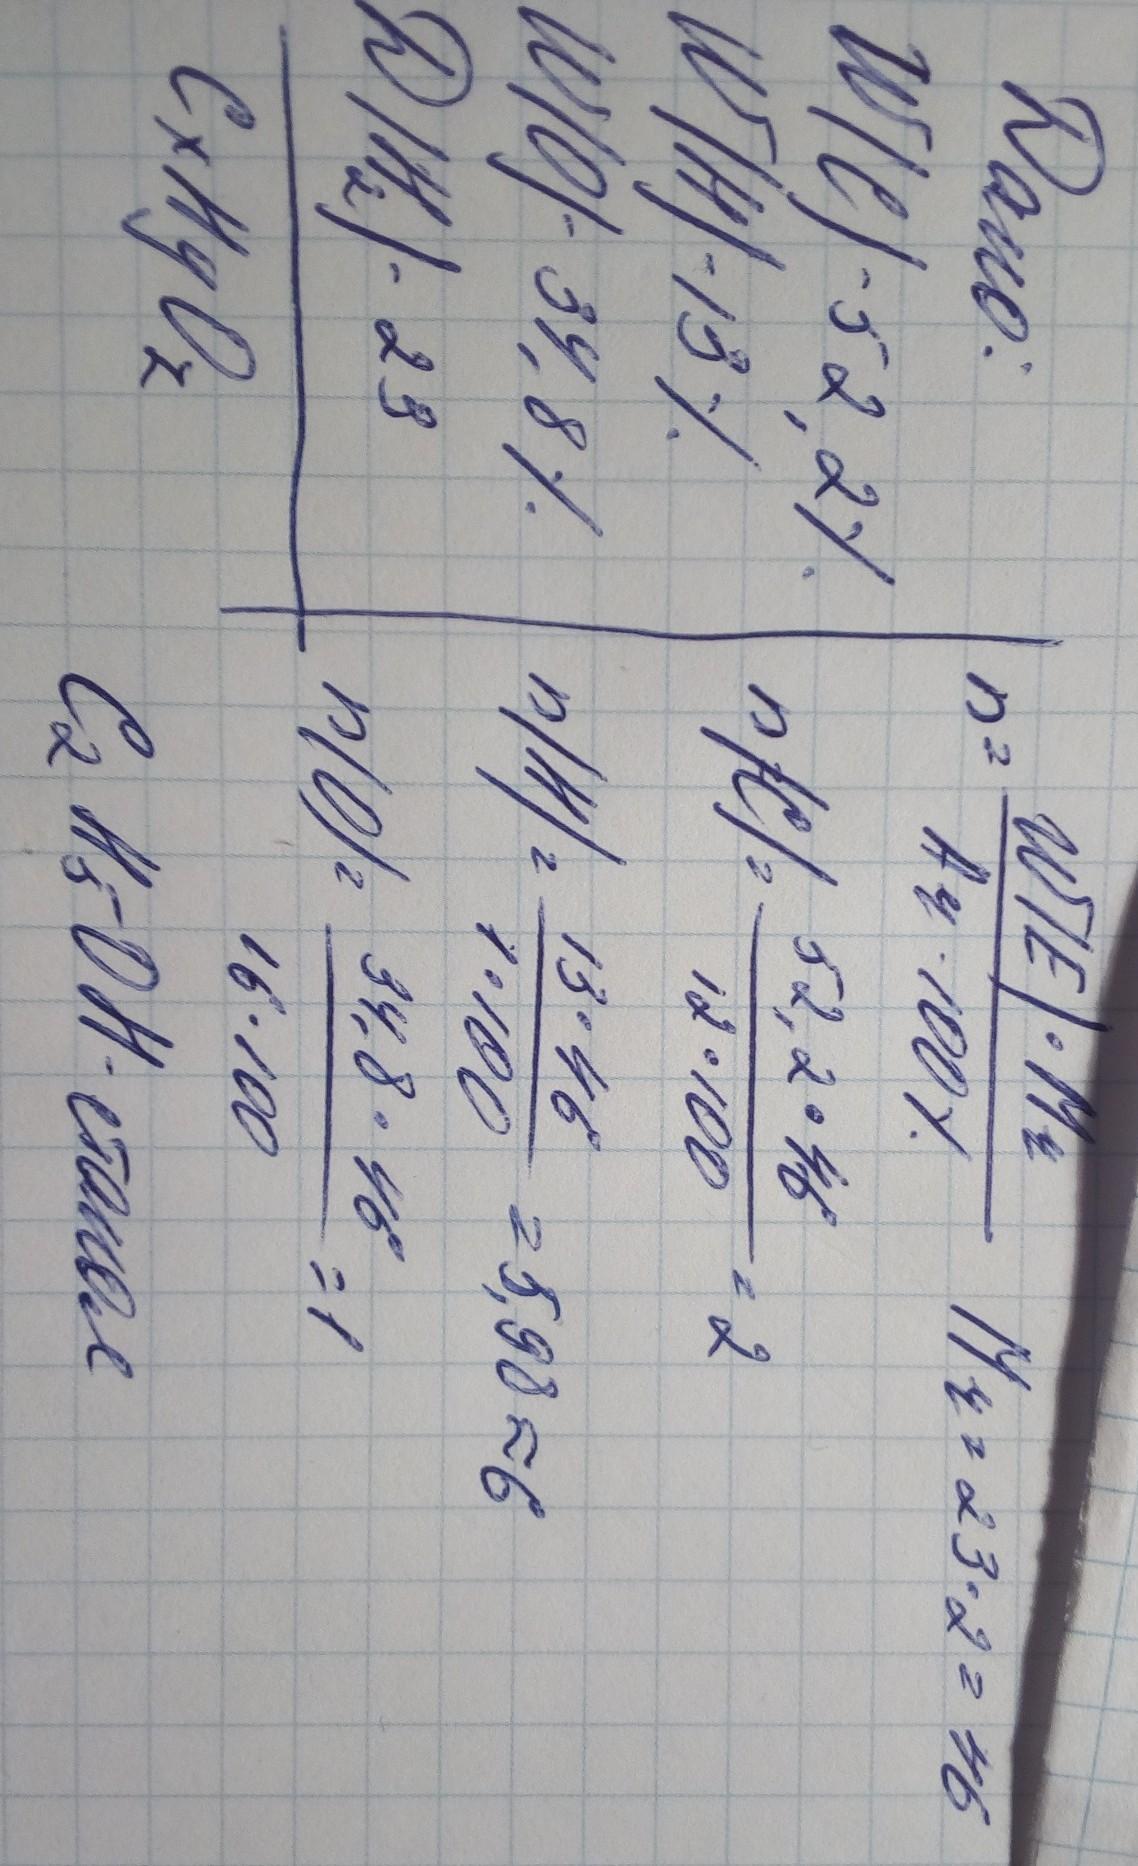 Дано:
W(C) - 52,2%
W(H) - 13%
W(O) - 34,8%
D(H2) - 23
CxHyOz
n = W(E) · Mr / Ar · 100%
Mr = 23 · 2 = 46
n(C) = 52,2 · 46 / 12 · 100 = 2
n(H) = 13 · 46 / 1 · 100 = 5,98 ≈ 6
n(O) = 34,8 · 46 / 16 · 100 = 1
C2H5OH - етанол